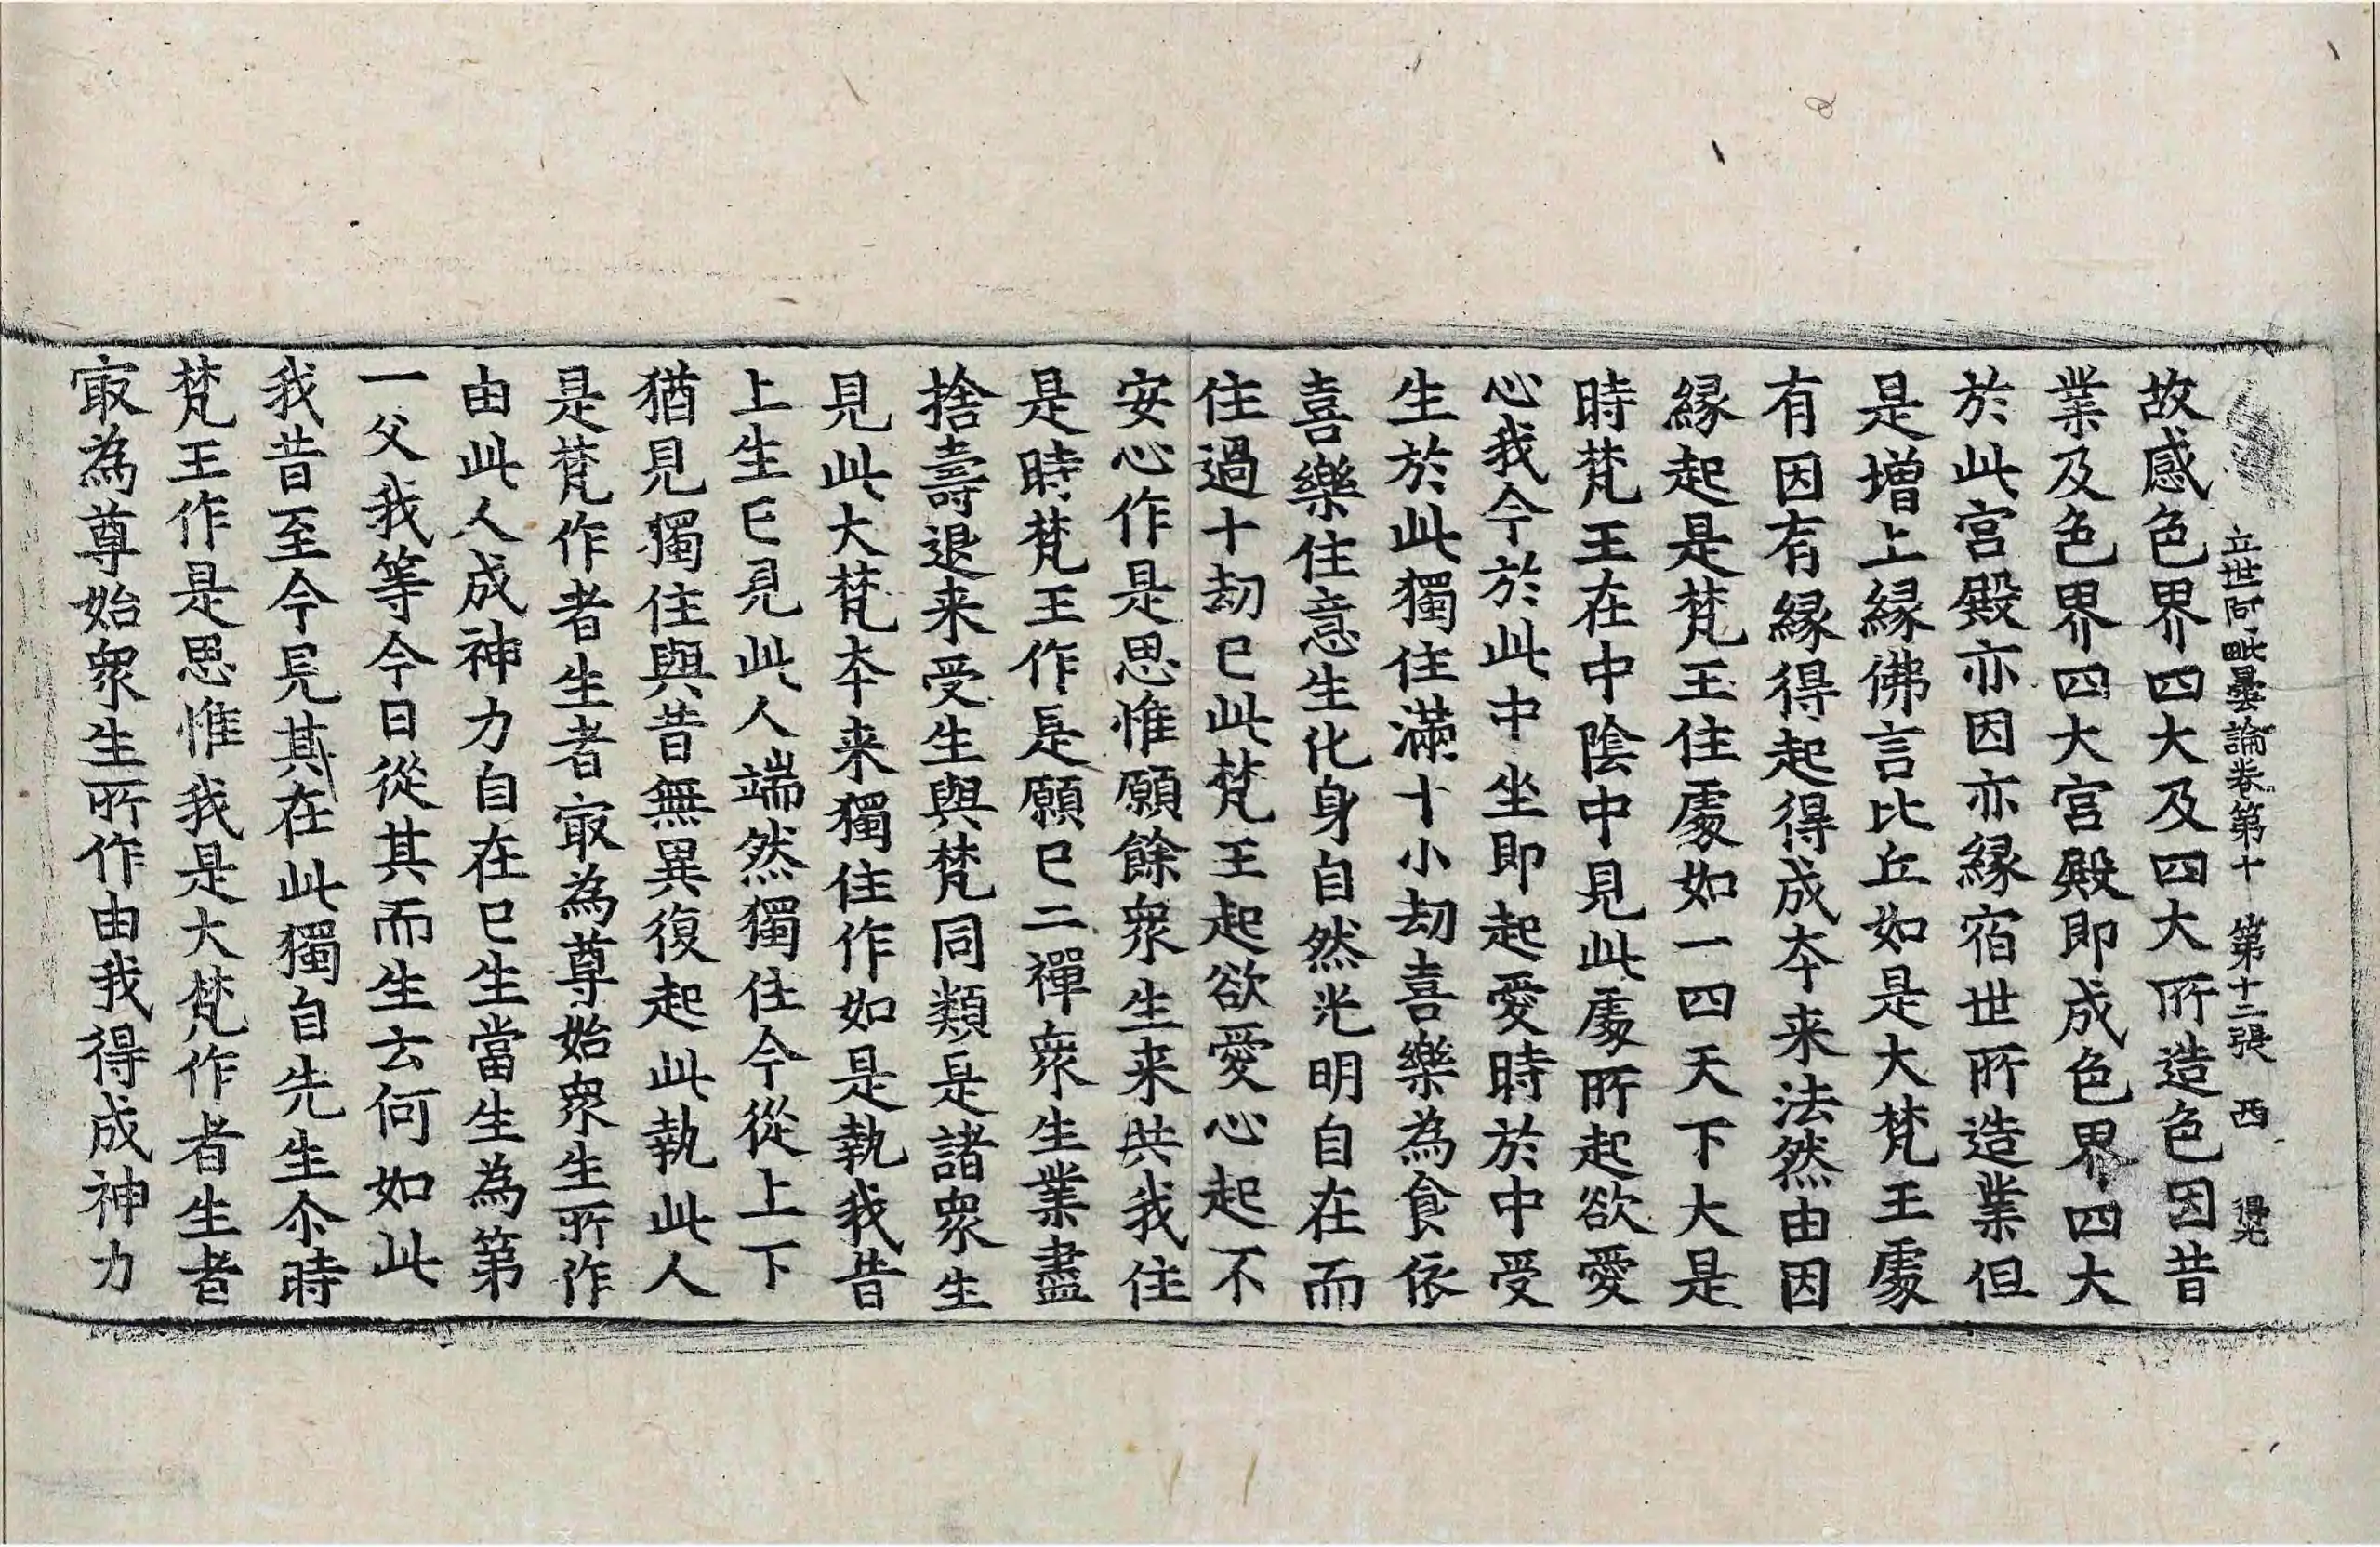 立世阿毗曇論卷第十 第十二張 西 得光
故感色界四大及四大所造色因昔
業及色界四大宮殿即成色界四大
於此宮殿亦因亦縁宿世所造業但
是增上縁佛言比丘如是大梵王處
有因有縁得起得成夲来法然由因
縁起是梵王住處如一四天下大是
時梵王在中陰中見此處所起欲愛
心我今於此中坐即起愛時於中受
生於此獨住滿十小劫喜樂為食依
喜樂住意生化身自然光明自在而
住過十劫已此梵王起欲愛心起不
安心作是思惟願餘衆生来共我住
是時梵王作是願已二禪衆生業盡
捨壽退来受生與梵同類是諸衆生
見此大梵夲来獨住作如是執我昔
上生已見此人端然獨住今從上下
猶見獨住與昔無異復起此執此人
是梵作者生者㝡為尊始衆生所作
由此人成神力自在已生當生為第
一父我等今日從其而生去何如此
我昔至今見其在此獨自先生尒時
梵王作是思惟我是大梵作者生者
㝡為尊始衆生所作由我得成神力